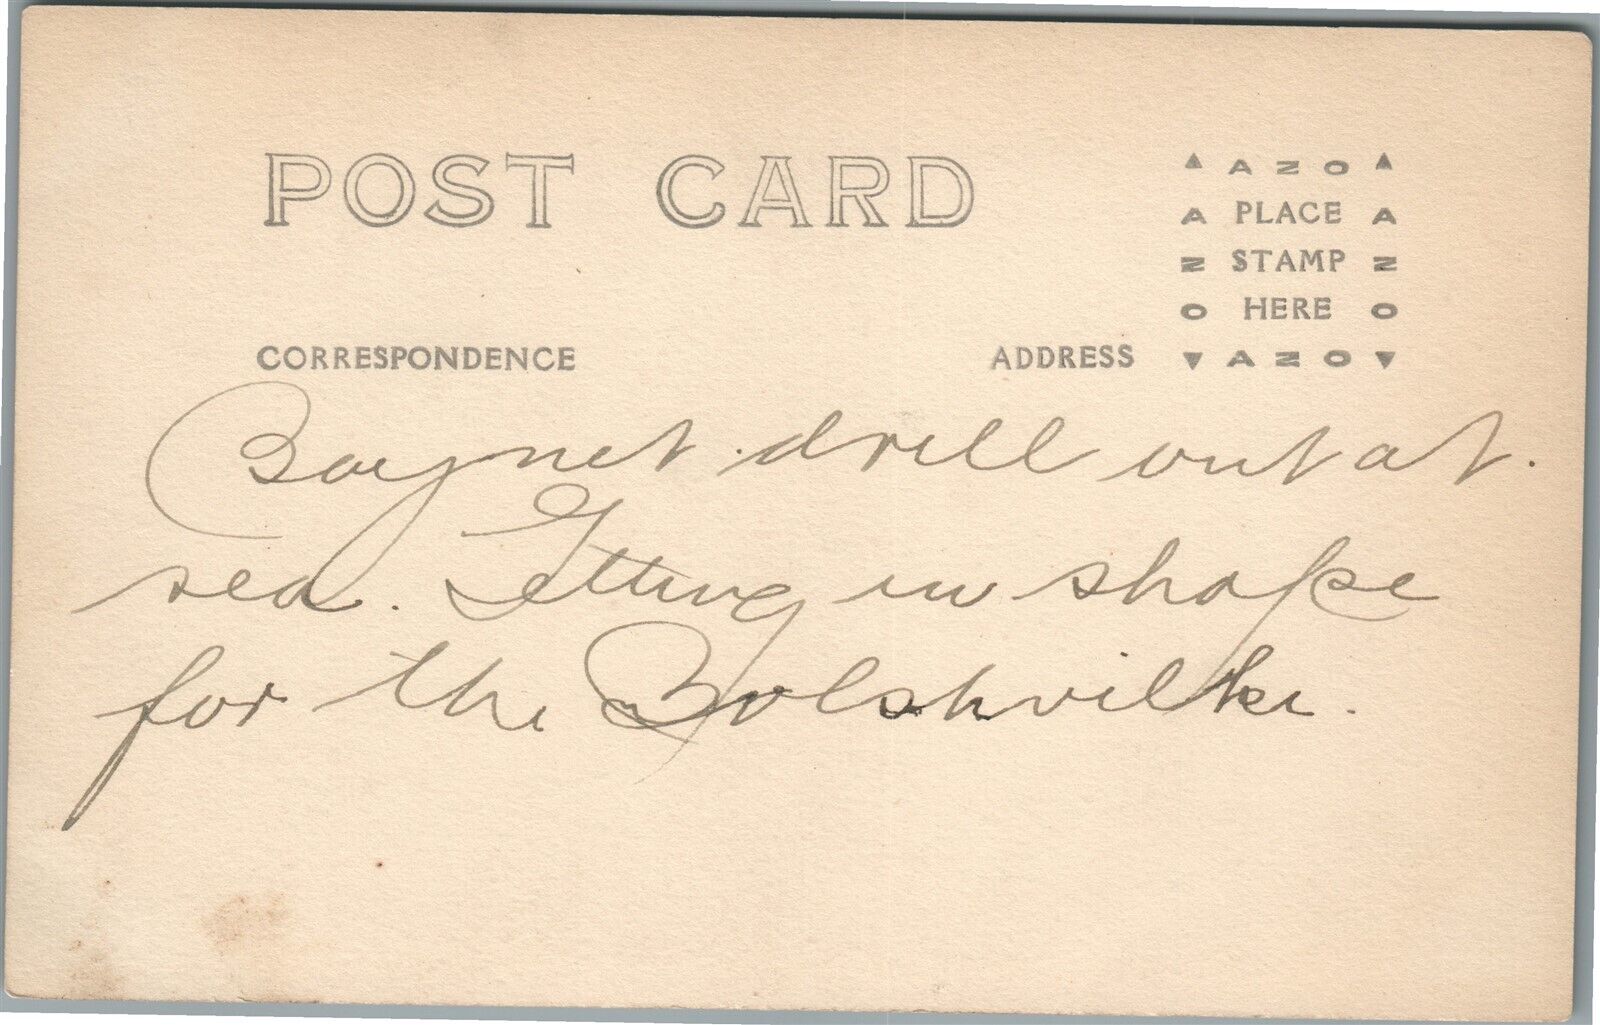 POST CARD
▲ AZO ▲
A PLACE A
Z STAMP Z
O HERE O
CORRESPONDENCE
ADDRESS ▼ AZO ▼
Baynet drill out at.
sea. Getting in shape
for the Bolshvilke.